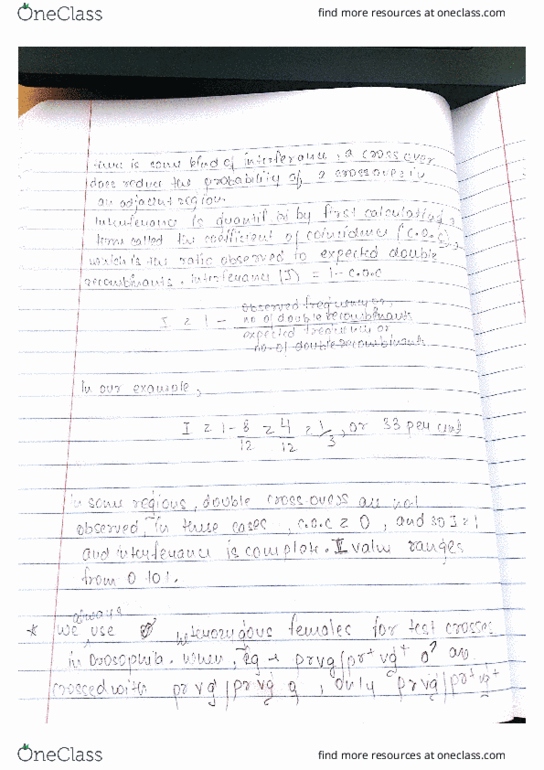 OneClass
find more resources at oneclass.com
there is some kind of interferance, a cross over
does reduce the probability of a crossover in
an adjacent region.
Interferance is quantif by first calculating a
term called the coefficient of coincidence (c.o.c),
which is the ratio observed to expected double
recombinants. interferance (I) = 1- c.o.c
I = 1 - observed frequency or
no of double recombinants
expected frequency or
no. of double recombinants
In our example,
I = 1 - 8/12 = 4/12 = 1/3, or 33 per cent
in some regions, double cross-overs are not
observed, in these cases, c.o.c = 0, and so I = 1
and interferance is complate. I value ranges
from 0 to 1.
always
* We use females for test crosses
in Drosophila. when, eg → prvg/pr+ vg+ ♂ are
crossed with pr vg/pr vg ♀, only prvg/pr+ vg+
OneClass
find more resources at oneclass.com